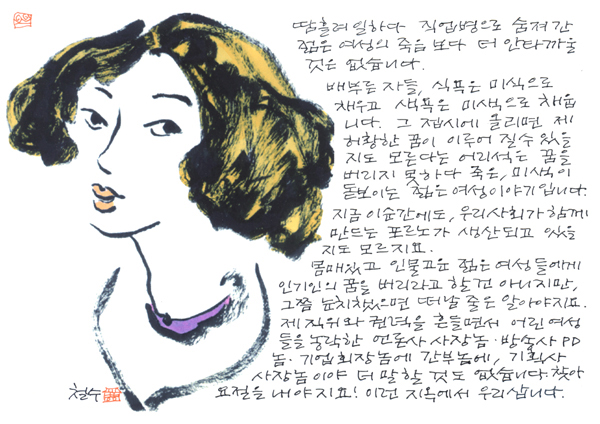 땀흘려 일하다 직업병으로 숨져간
젊은 여성의 죽음 보다 더 안타까울
것은 없습니다.
배부른 자들, 식욕은 미식으로
채우고 색욕은 미색으로 채웁
니다. 그 접시에 올리면 제
허황한 꿈이 이루어 질수 있을
지도 모른다는 어리석은 꿈을
버리지 못하다 죽은, 미색이
돋보이는 젊은 여성이야기입니다.
지금 이순간에도, 우리사회가 함께
만드는 포르노가 생산되고 있을
지도 모르지요.
몸매있고 인물고운 젊은 여성들에게
인기인의 꿈을 버리라고 할건 아니지만,
그쯤 눈치챘으면 떠날 줄은 알아야지요.
제 직위와 권력을 흔들면서 어린여성
들을 농락한 언론사 사장놈·방송사 PD
놈·기업회장놈에 간부놈에, 기획사
사장놈이야 더 말할 것도 없습니다. 찾아
요절을 내야지요! 이런 지옥에서 우리삽니다.
철수